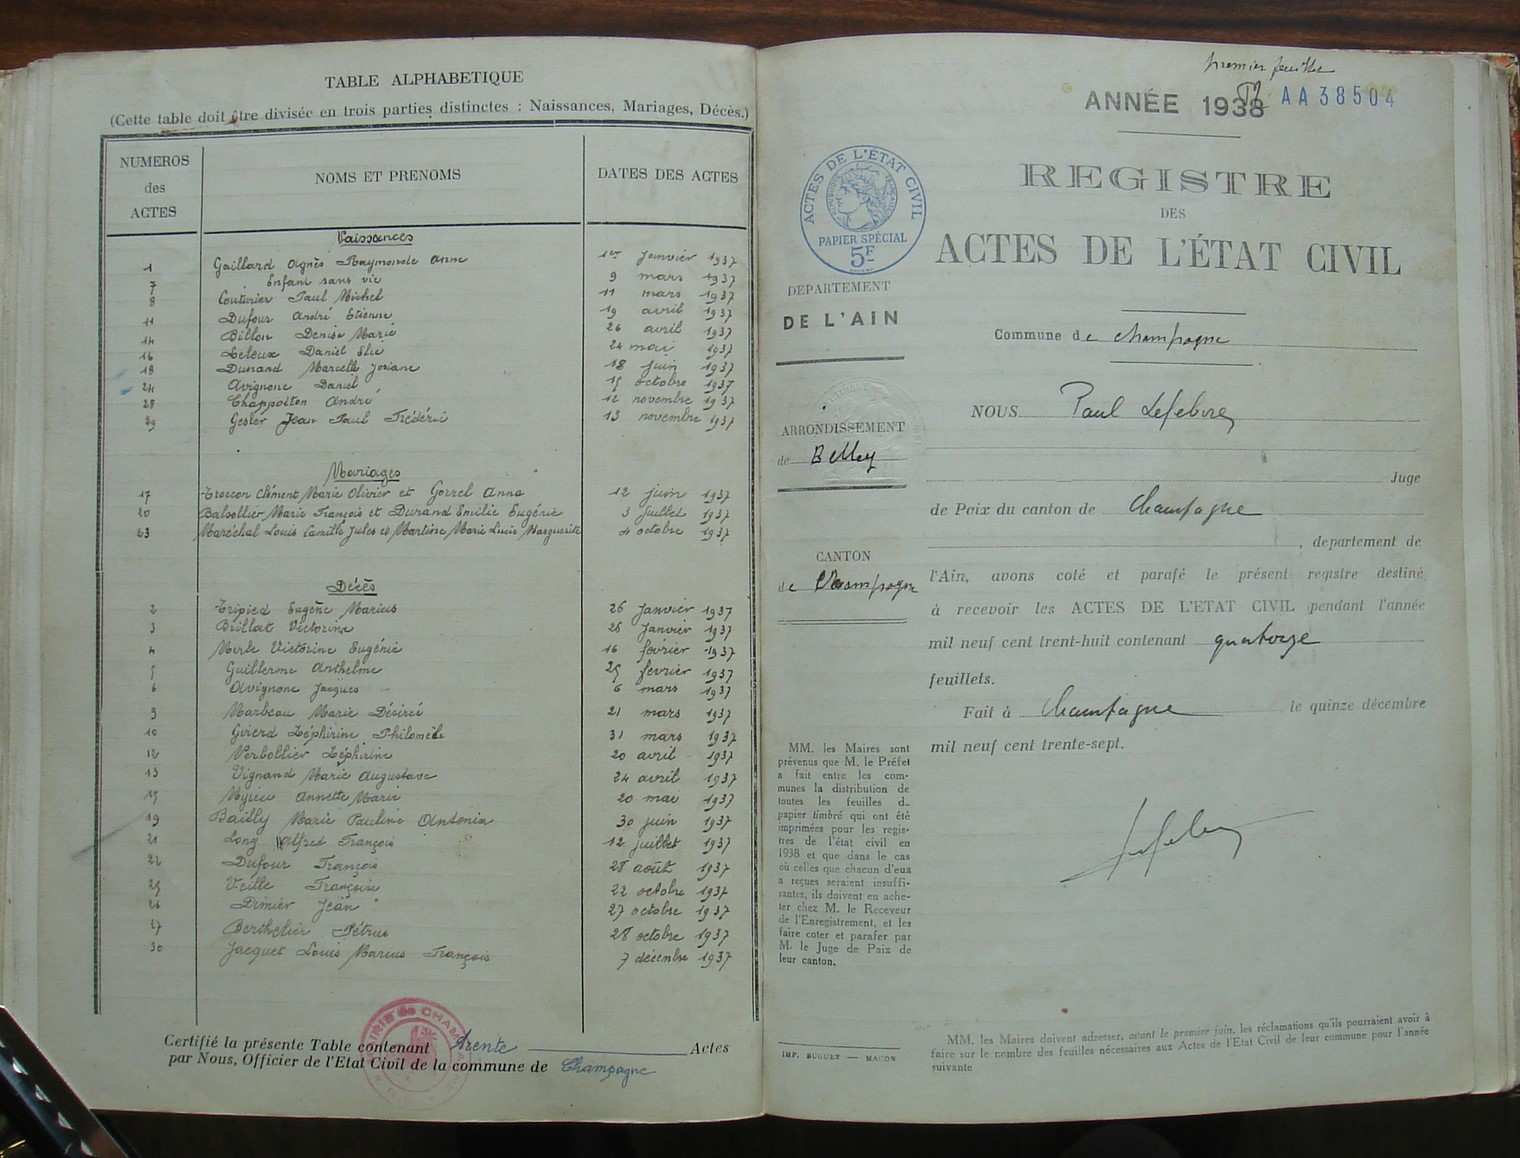 TABLE ALPHABETIQUE
(Cette table doit être divisée en trois parties distinctes : Naissances, Mariages, Décès.)
NUMEROS des ACTES
NOMS ET PRENOMS
DATES DES ACTES
Naissances
1 Gaillard Agnès Raymonde Anne 1er janvier 1937
7 Enfant sans vie 9 mars 1937
8 Couturier Paul Michel 11 mars 1937
11 Dufour André Etienne 19 avril 1937
14 Billon Denise Marie 26 avril 1937
16 Leleux Daniel Elie 24 mai 1937
18 Dunand Marcelle Josiane 18 juin 1937
24 Avignone Daniel 15 octobre 1937
28 Chappotton André 12 novembre 1937
29 Gesler Jean Paul Frédéric 13 novembre 1937
Mariages
17 Clément Marie Olivier et Gorrel Anna 12 juin 1937
20 Balsollier Marie François et Durand Emilie Eugénie 3 juillet 1937
23 Maréchal Louis Camille Jules et Martine Marie Lucie Marguerite 4 octobre 1937
Décès
2 Tripied Eugène Marius 26 janvier 1937
3 Brillat Victorine 28 janvier 1937
4 Merle Victorine Eugénie 16 février 1937
5 Guillerme Anthelme 25 février 1937
6 Avignone Jacques 6 mars 1937
9 Marbeau Marie Désiré 21 mars 1937
10 Gvierd Zéphirine Philomène 31 mars 1937
12 Verbollier Zéphirine 20 avril 1937
13 Vignand Marie Augustave 24 avril 1937
15 Myieu Annette Marie 20 mai 1937
19 Bailly Marie Pauline Antonia 30 juin 1937
21 Long Alfred François 12 juillet 1937
22 Dufour François 28 août 1937
25 Veille Françoise 22 octobre 1937
26 Dimier Jean 27 octobre 1937
27 Berthelier Pétrus 28 octobre 1937
30 Jacquet Louis Marius François 7 décembre 1937
Certifié la présente Table contenant trente Actes
par Nous, Officier de l'Etat Civil de la commune de Champagne
premier feuillet
ANNÉE 1938 AA38504
REGISTRE
DES
ACTES DE L'ÉTAT CIVIL
ACTES DE L'ÉTAT CIVIL
PAPIER SPÉCIAL
5F
DEPARTEMENT
DE L'AIN
Commune de Champagne
ARRONDISSEMENT
de Belley
CANTON
de Champagne
NOUS Paul Lefebvre
Juge
de Paix du canton de Champagne
, departement de
l'Ain, avons coté et parafé le présent registre destiné
à recevoir les ACTES DE L'ETAT CIVIL pendant l'année
mil neuf cent trent-huit contenant quatorze
feuillets.
Fait à Champagne le quinze décembre
mil neuf cent trente-sept.
MM. les Maires sont
prévenus que M. le Préfet
a fait entre les com-
munes la distribution de
toutes les feuilles d
papier timbré qui ont été
imprimées pour les regis-
tres de l'état civil en
1938 et que dans le cas
où celles que chacun d'eux
a reçues seraient insuffi-
santes, ils doivent en ache-
ter chez M. le Receveur
de l'Enregistrement, et les
faire coter et parafer par
M. le Juge de Paix de
leur canton.
IMP. BUGUET — MACON
MM. les Maires doivent adresser, avant le premier juin, les réclamations qu'ils pourraient avoir à
faire sur le nombre des feuilles nécessaires aux Actes de l'Etat Civil de leur commune pour l'année
suivante